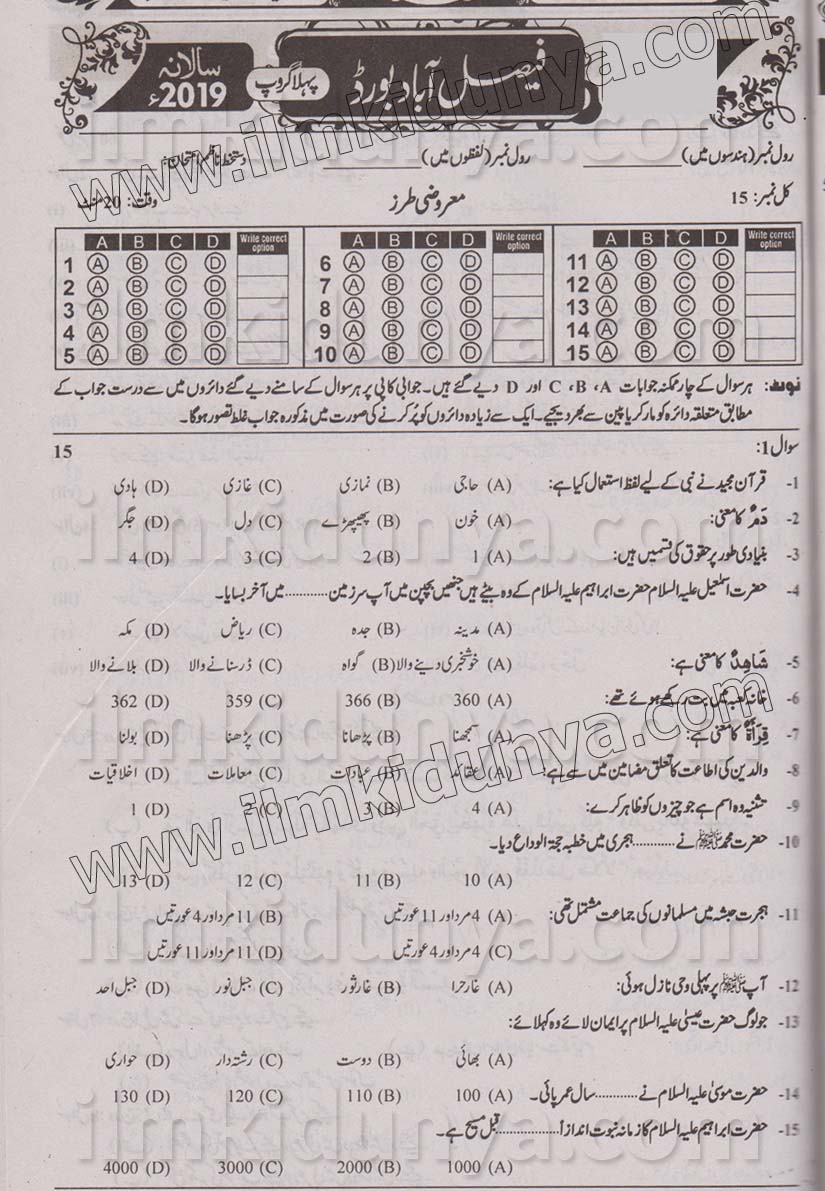 فیصل آباد بورڈ
پہلا گروپ
سالانہ 2019ء
رول نمبر (ہندسوں میں) ــــــــــ رول نمبر (لفظوں میں) ــــــــــ دستخط ناظم امتحان: ــــــــــ
کل نمبر: 15 معروضی طرز وقت: 20 منٹ
A B C D Write correct option A B C D Write correct option A B C D Write correct option
1 A B C D 6 A B C D 11 A B C D
2 A B C D 7 A B C D 12 A B C D
3 A B C D 8 A B C D 13 A B C D
4 A B C D 9 A B C D 14 A B C D
5 A B C D 10 A B C D 15 A B C D
نوٹ: ہر سوال کے چار ممکنہ جوابات A، B، C اور D دیے گئے ہیں۔ جوابی کاپی پر ہر سوال کے سامنے دیے گئے دائروں میں سے درست جواب کے
مطابق متعلقہ دائرہ کو مارکر یا پین سے بھر دیجیے۔ ایک سے زیادہ دائروں کو پُر کرنے کی صورت میں مذکورہ جواب غلط تصور ہوگا۔
سوال 1: 15
1- قرآن مجید نے نبی کے لیے لفظ استعمال کیا ہے: (A) حاجی (B) نمازی (C) غازی (D) ہادی
2- دَمٌ کا معنی: (A) خون (B) پھیپھڑے (C) دل (D) جگر
3- بنیادی طور پر حقوق کی قسمیں ہیں: (A) 1 (B) 2 (C) 3 (D) 4
4- حضرت اسمٰعیل علیہ السلام حضرت ابراہیم علیہ السلام کے وہ بیٹے ہیں جنھیں بچپن میں آپ سرزمین ............ میں آخر بسایا۔
(A) مدینہ (B) جدہ (C) ریاض (D) مکہ
5- شَاهِدٌ کا معنی ہے: (A) خوشخبری دینے والا (B) گواہ (C) ڈر سنانے والا (D) بلانے والا
6- خانہ کعبہ میں بت رکھے ہوئے تھے: (A) 360 (B) 366 (C) 359 (D) 362
7- قِرَأةٌ کا معنی ہے: (A) سمجھنا (B) پڑھانا (C) پڑھنا (D) بولنا
8- والدین کی اطاعت کا تعلق مضامین میں سے ہے: (A) عقائد (B) عبادات (C) معاملات (D) اخلاقیات
9- تثنیہ وہ اسم ہے جو چیزوں کو ظاہر کرے: (A) 4 (B) 3 (C) 2 (D) 1
10- حضرت محمد ﷺ نے ............ ہجری میں خطبہ حجۃ الوداع دیا۔
(A) 10 (B) 11 (C) 12 (D) 13
11- ہجرت حبشہ میں مسلمانوں کی جماعت مشتمل تھی: (A) 4 مرد اور 11 عورتیں (B) 11 مرد اور 4 عورتیں
(C) 4 مرد اور 4 عورتیں (D) 11 مرد اور 11 عورتیں
12- آپ ﷺ پر پہلی وحی نازل ہوئی: (A) غار حرا (B) غار ثور (C) جبل نور (D) جبل احد
13- جو لوگ حضرت عیسیٰ علیہ السلام پر ایمان لائے وہ کہلائے:
(A) بھائی (B) دوست (C) رشتہ دار (D) حواری
14- حضرت موسیٰ علیہ السلام نے ............ سال عمر پائی۔ (A) 100 (B) 110 (C) 120 (D) 130
15- حضرت ابراہیم علیہ السلام کا زمانہ نبوت اندازاً ............ قبل مسیح ہے۔
(A) 1000 (B) 2000 (C) 3000 (D) 4000
www.ilmkidunya.com
www.ilmkidunya.com
ilmkidunya.com
ilmkidunya.com
ilmkidunya.com
ilmkidunya.com
ilmkidunya.com
ilmkidunya.com